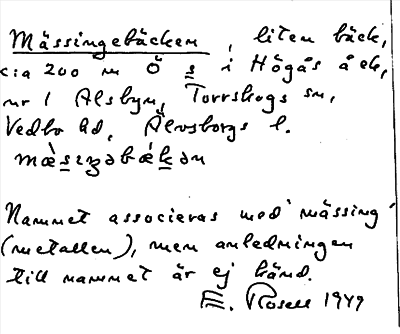 Mässingebäcken, liten bäck,
c:a 200 m Ö s i Högås åck,
nr 1 Alsbyn, Torrskogs sn,
Vedbo hd, Älvsborgs l.
mæ̀siŋəbǽkən
Namnet associeras med 'mässing'
(metallen), men anledningen
till namnet är ej känd.
E. Rosell 1949